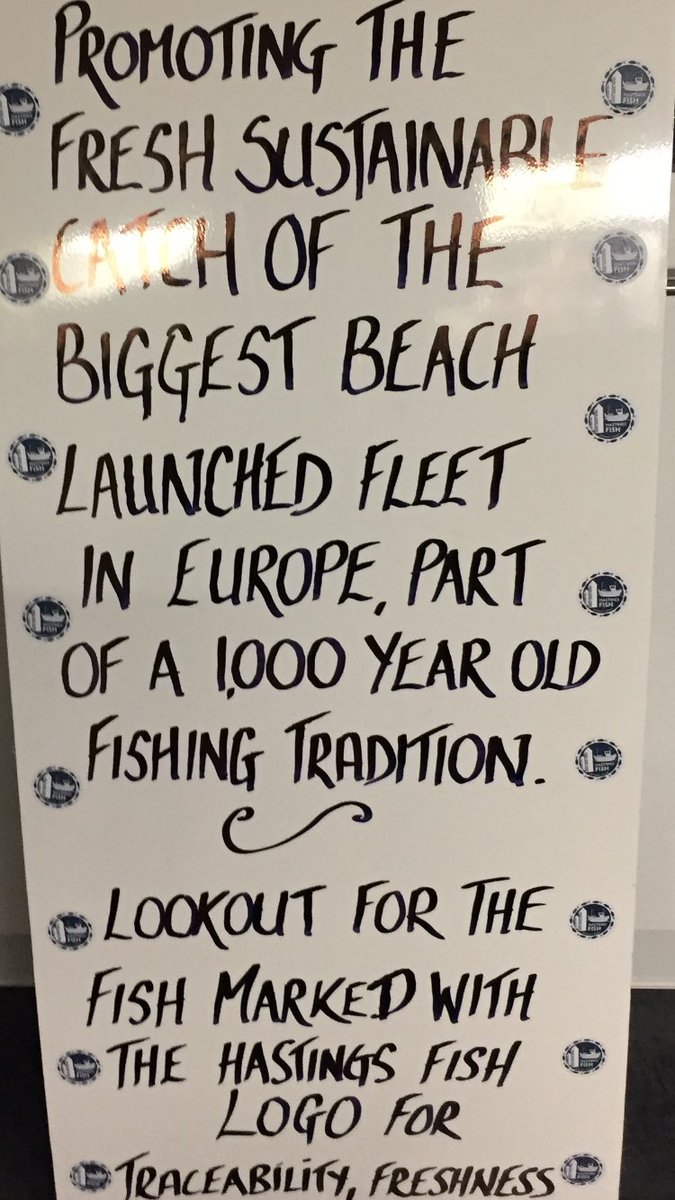 PROMOTING THE
FRESH SUSTAINABLE
CATCH OF THE
BIGGEST BEACH
LAUNCHED FLEET
IN EUROPE, PART
OF A 1,000 YEAR OLD
FISHING TRADITION.
LOOKOUT FOR THE
FISH MARKED WITH
THE HASTINGS FISH
LOGO FOR
TRACEABILITY, FRESHNESS
HASTINGS
FISH